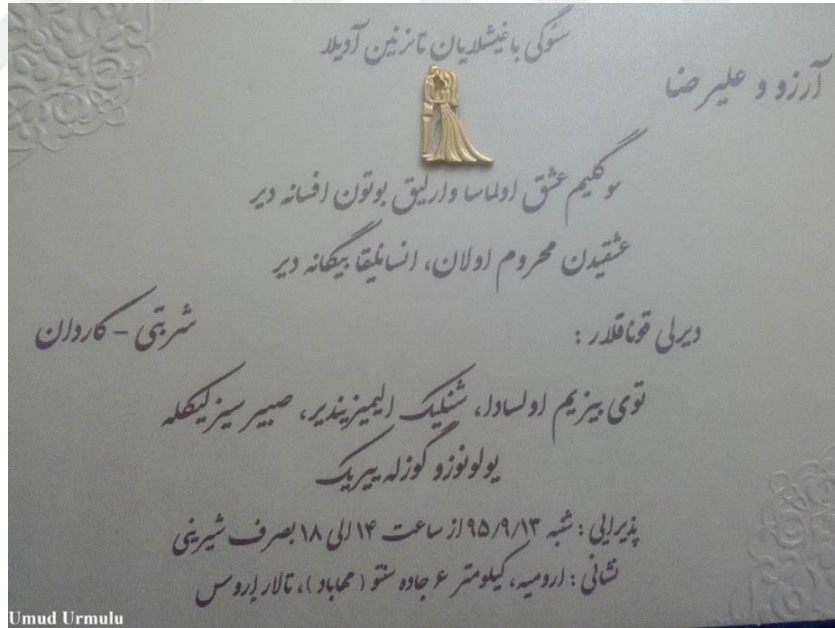 سئوگی باغیشلایان تانرنین آدیلا
آرزو و علیرضا
سوگلیم عشق اولماسا وارلیق بوتون افسانه دیر
عشقیدن محروم اولان، انسانلیقا بیگانه دیر
دیرلی قوناقلار :
شربتی - کاردان
توی بیزیم اولسادا، شنلیک الیمیزیندیر، صبیر سیزلیکله
یولونوزو گوزله ییریک
پذیرایی : شنبه ۹۵/۹/۱۳ از ساعت ۱۴ الی ۱۸ بصرف شیرینی
نشانی : ارومیه، کیلومتر ۶ جاده سنتو ( مهاباد )، تالار اروس
Umud Urmulu